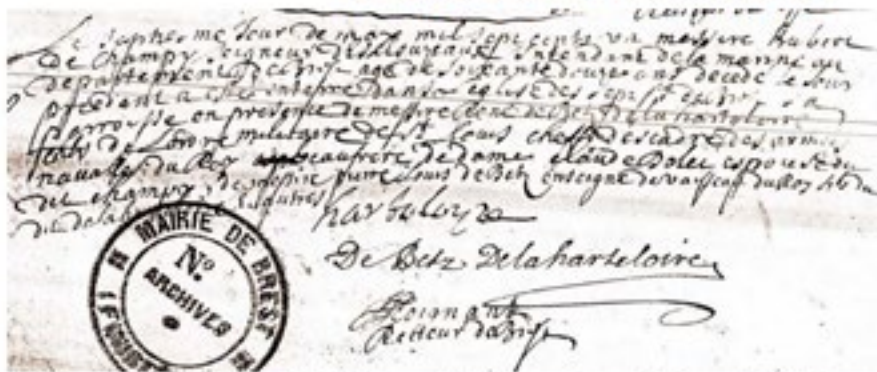 Le septiesme Jour de may mil sept cents un messire hubert
De champy Seigneur Desclouzeaux Intendant de la marine au
departement de agé de soixante douze ans decedé le Jour
precedent a esté enterré dans eglise des sept sa
parroisse en presence de messire René de Betz De la harteloire
de Lordre militaire de St Louis chef descadre des armées
navalles du Roy beaufrere de dame claude espouse du
dit champy, de messire pierre Louis de Betz enseigne de vaisseau du Roy fils du
dit dela autres
harteloire
De Betz Delaharteloire
Recteur de Brest
MAIRIE DE BREST
No
ARCHIVES